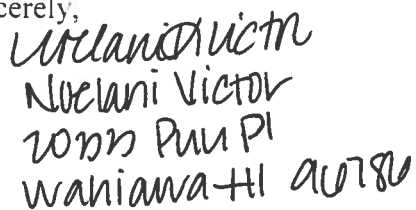 cerely,
Noelani Victor
Noelani Victor
Puu Pl
Wahiawa HI 96786